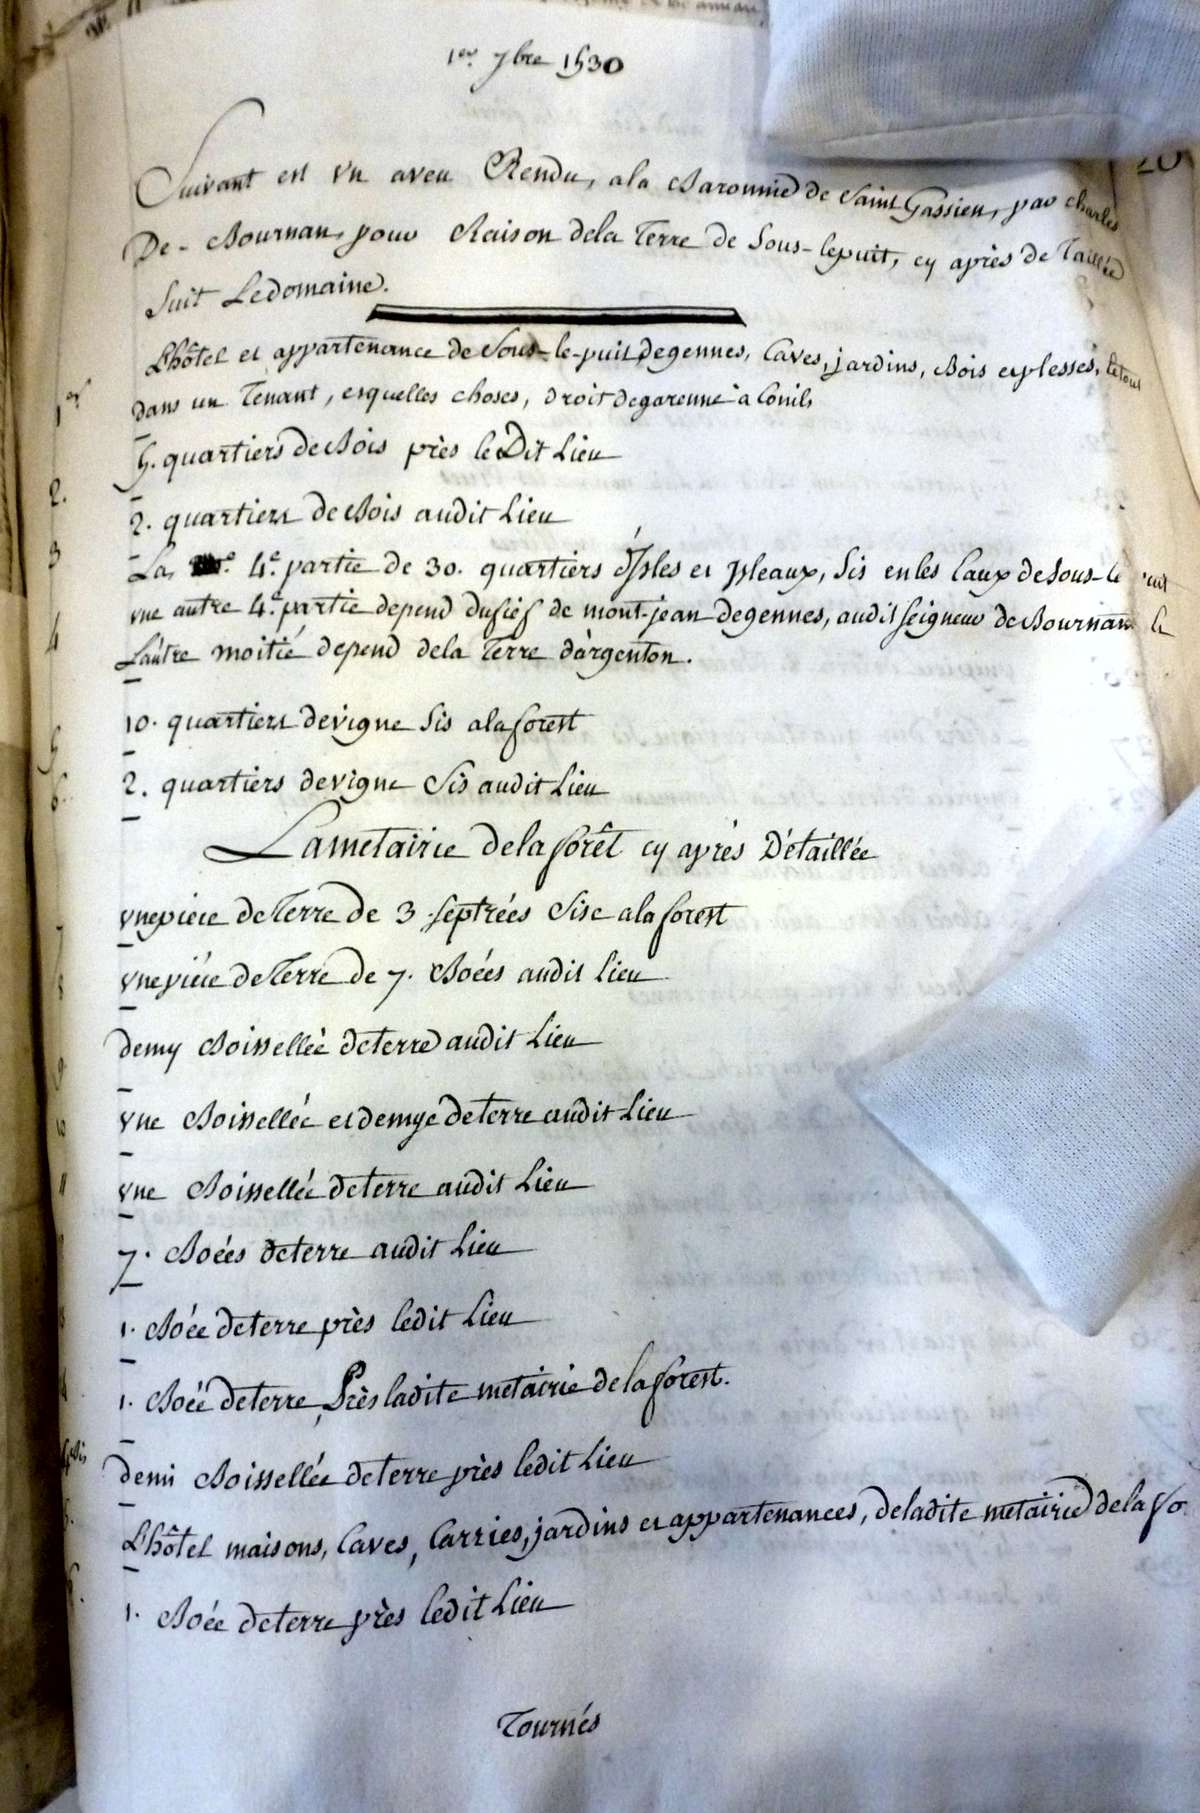 1er. 7bre 1530
20
Suivant est vn aveu Rendu, ala Baronnie de Saint Gassien, par charles
De-Bournan, pour Raison dela Terre de Sous-lepuit, cy après de Taillée
Suit Ledomaine.
1er L'hôtel et appartenance de Sous-le-puit, degennes, Caves, jardins, Bois et plesses, letout
dans un Tenant, esquelles choses, droit degarenne à Conils
2. 5. quartiers deBois près leDit Lieu
3 2. quartiers deBois audit Lieu
4 La 4e. partie de 30. quartiers d'Isles et Isleaux, Sis enles Eaux deSous-le puit
vne autre 4e. partie depend dufief de mont-jean degennes, audit Seigneur deBournan &
L'autre moitié depend dela Terre d'argenton.
5 10. quartiers devigne Sis alaforest
6 2. quartiers devigne Sis audit Lieu
Lametairie delaforêt cy après Détaillée
7 vnepiece deTerre de 3 septrées Sise alaforest
8 vnepiéce deTerre de 7. Boées audit Lieu
9 demy Boissellée deterre audit Lieu
10 vne Boissellée et demye deterre audit Lieu
11 vne Boissellée deterre audit Lieu
7. Boées deterre audit Lieu
3 1. Boée deterre près ledit Lieu
4 1. Boée deterre Près ladite metairie delaforest.
4bis demi Boissellée deterre près ledit Lieu
5. L'hôtel maisons, Caves, Carries, jardins et appartenances, deladite metairie dela fo
6. 1. Boée deterre près ledit Lieu
Tournés